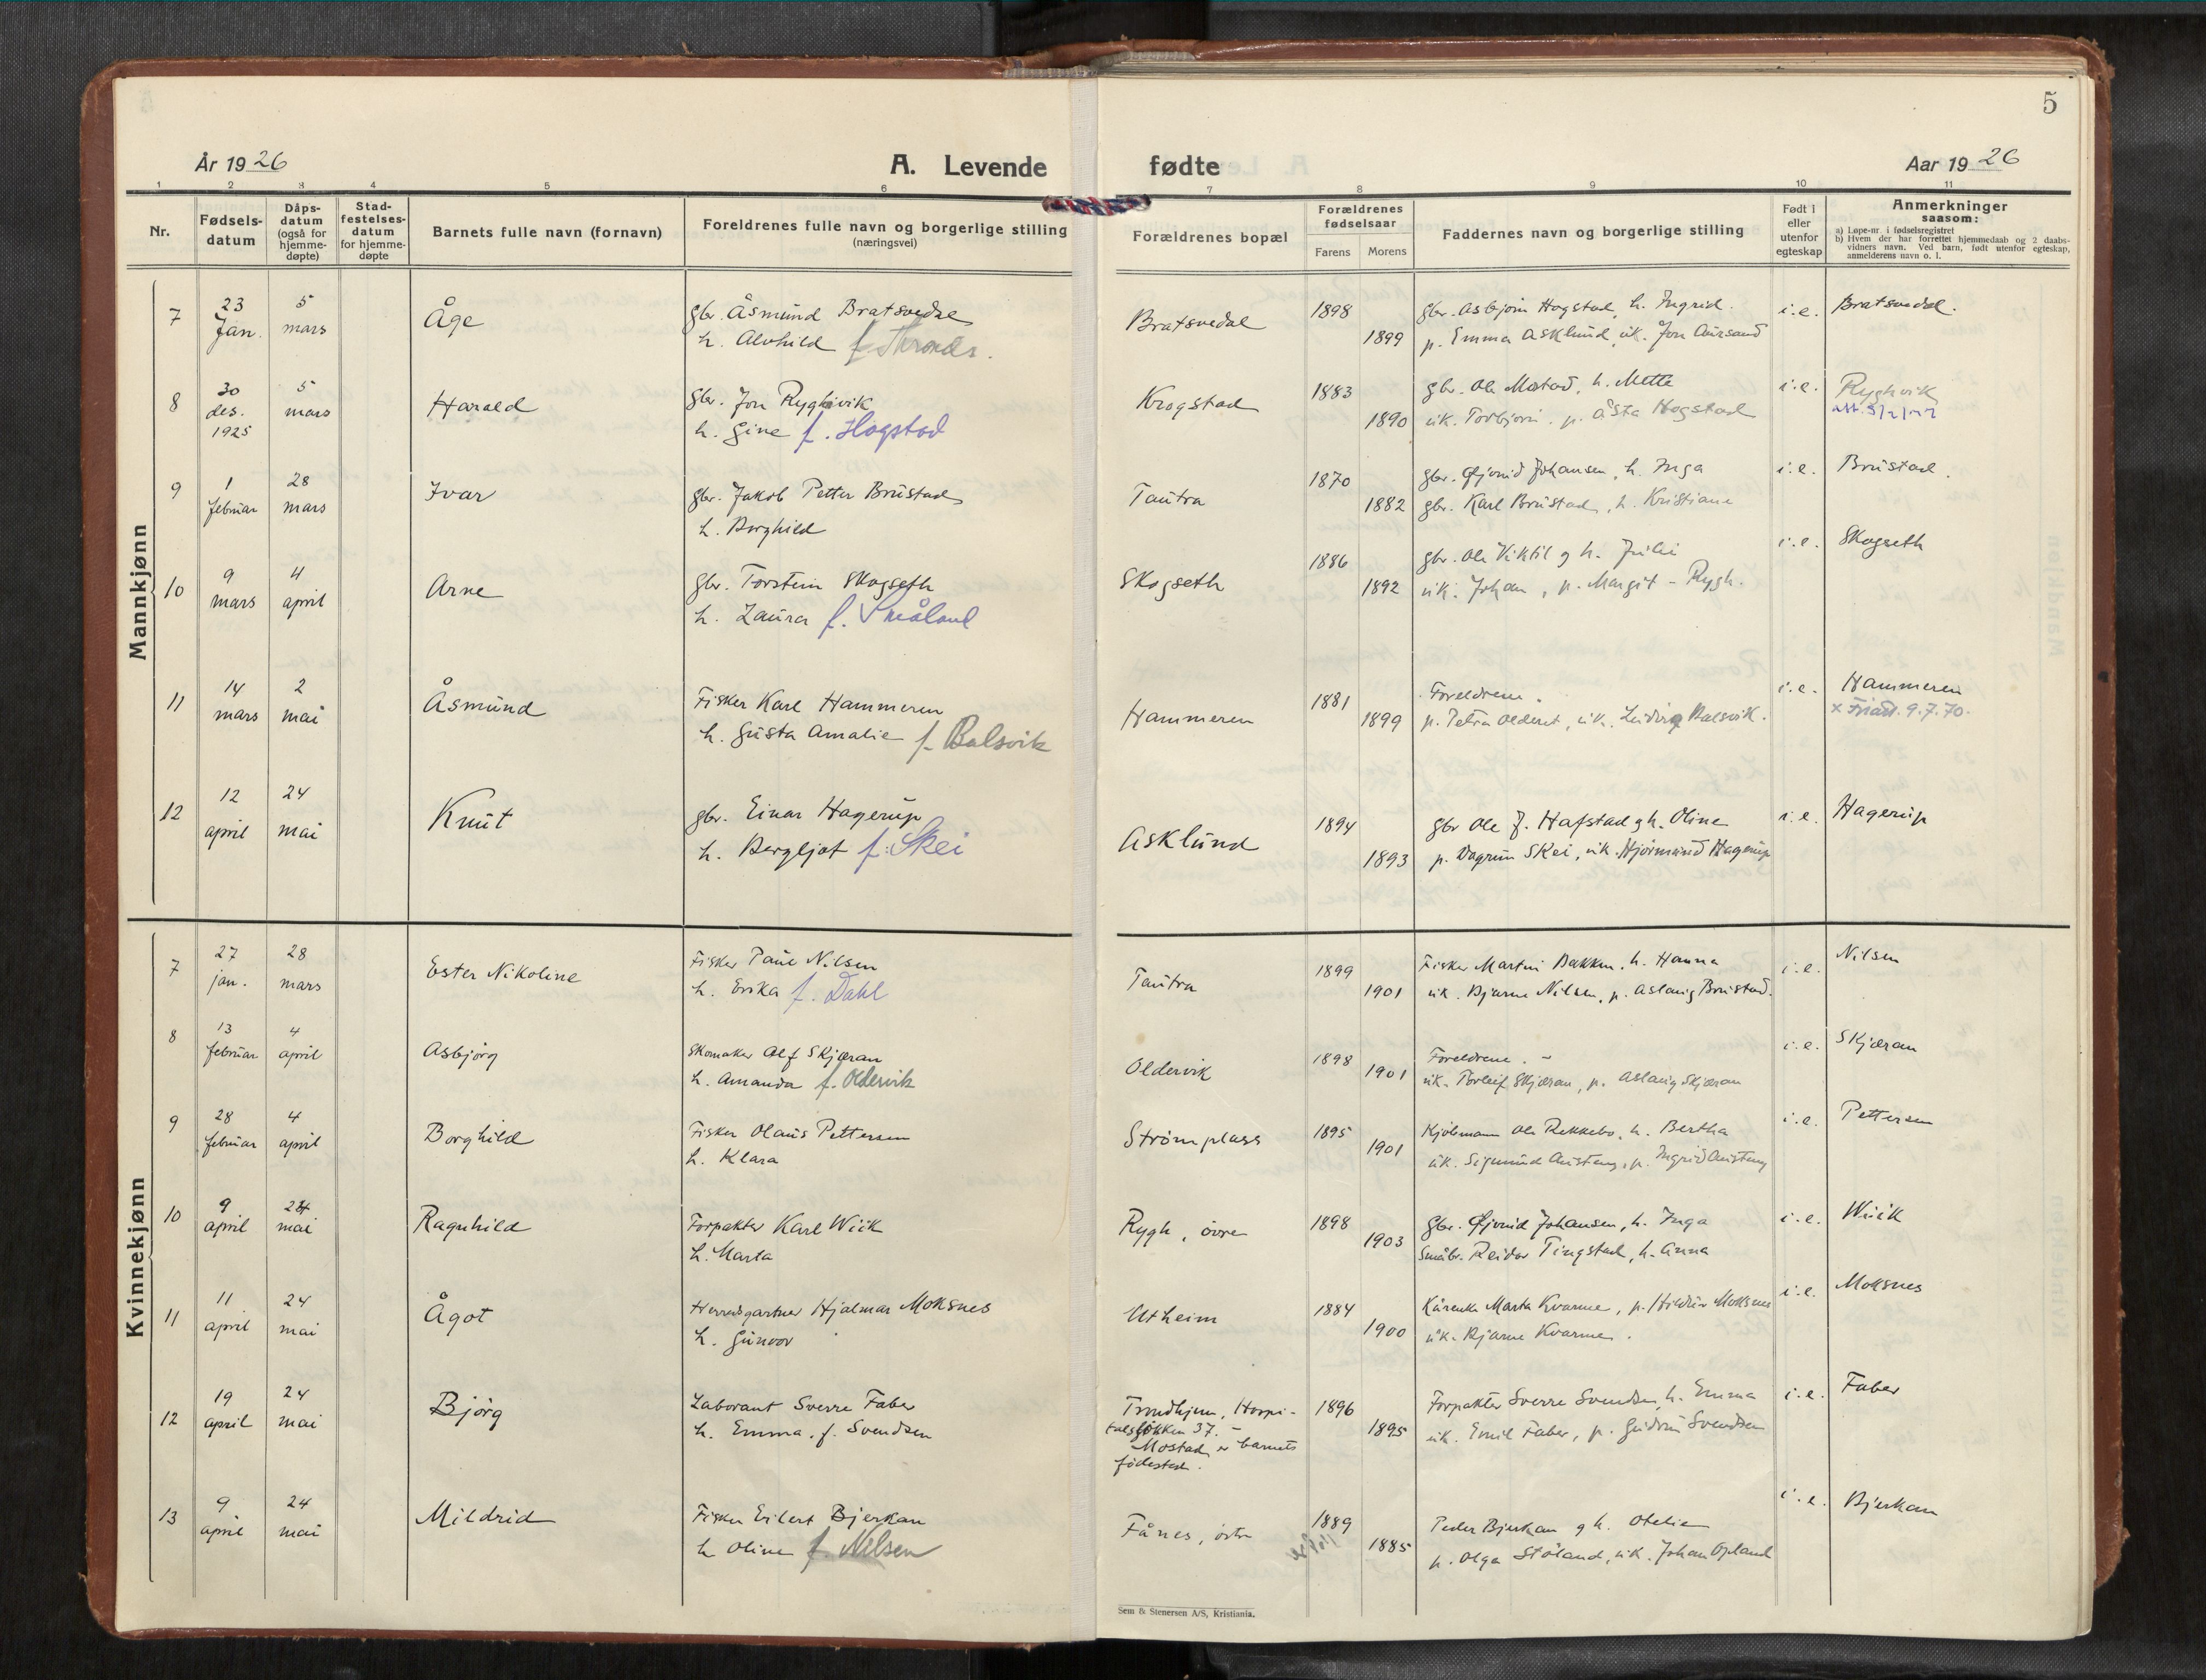 5
År 1926
A. Levende fødte
Aar 1926
1 2 3 4 5 6 7 8 9 10 11
Nr.
Fødsels-
datum
Dåps-
datum
(også for
hjemme-
døpte)
Stad-
festelses-
datum
for hjemme-
døpte
Barnets fulle navn (fornavn)
Foreldrenes fulle navn og borgerlige stilling
(næringsvei)
Forældrenes bopæl
Forældrenes
fødselsaar
Farens Morens
Faddernes navn og borgerlige stilling
Født i
eller
utenfor
egteskap
Anmerkninger
saasom:
a) Løpe-nr. i fødselsregistret
b) Hvem der har forrettet hjemmedaab og 2 daabs-
vidners navn. Ved barn, født utenfor egteskap,
anmelderens navn o. l.
Mannkjønn
7 23 Jan. 5 mars Åge
gbr. Åsmund Bratsvedal
h. Alvhild f.
Bratsvedal 1898 1899
gbr. Asbjørn Hogstad, h. Ingrid.
p. Emma Asklund, uk. Jon Aursand
i.e. Bratsvedal.
8 30 des. 1925 5 mars Harald
gbr. Jon Ryghvik
h. Gine f. Hogstad
Krogstad 1883 1890
gbr. Ole Mostad, h. Mette
uk. Torbjørn. p. Åsta Hogstad
i.e. Ryghvik
9 1 februar 28 mars Ivar
gbr. Jakob Petter Brustad
h. Borghild
Tautra 1870 1882
gbr. Øjvind Johansen, h. Inga
gbr. Karl Brustad, h. Kristiane
i.e. Brustad.
10 9 mars 4 april Arne
gbr. Torstein Skogseth
h. Laura f. Småland
Skogseth 1886 1892
gbr. Ole Viktil g h. Julie
uk. Johan, p. Margit - Rygh.
i.e. Skogseth
11 14 mars 2 mai Åsmund
Fisker Karl Hammeren
h. Gusta Amalie f. Balsvik
Hammeren 1881 1899
Foreldrene.
p. Petra Olderet, uk. Ludvig Balsvik.
i.e. Hammeren
9.7.70.
12 12 april 24 mai Knut
gbr. Einar Hagerup
h. Bergljot f. Skei
Asklund 1894 1893
gbr Ole J. Hafstad g h. Oline
p. Dagrun Skei, uk. Hjørmund Hagerup
i.e. Hagerup
Kvinnekjønn
7 27 jan. 28 mars Ester Nikoline
Fisker Paul Nilsen
h. Erika f. Dahl
Tautra 1899 1901
Fisker Martin Bakken, h. Hanna
uk. Bjarne Nilsen, p. Aslaug Brustad.
i.e. Nilsen
8 13 februar 4 april Asbjørg
Skomaker Alf Skjæran
h. Amanda f. Oldervik
Oldervik 1898 1901
Foreldrene. -
uk. Torleif Skjæran, p. Aslaug Skjæran
i.e. Skjæran
9 28 februar 4 april Borghild
Fisker Olaus Pettersen
h. Klara
Strømplass 1895 1901
Kjøbmann Ole Rekkebo, h. Bertha
uk. Sigmund Austeng, p. Ingrid Austeng
i.e. Pettersen
10 9 april 24 mai Ragnhild
Forpakter Karl Wiik
h. Marta
Rygh, øvre 1898 1903
Gbr. Øjvind Johansen, h. Inga
Småbr. Reidar Tingstad, h. Anna
i.e. Wiik
11 11 april 24 mai Ågot
Herredsgartner Hjalmar Moksnes
h. Gunvor
Utheim 1884 1900
Marta Kvarme, p. Hildur Moksnes
uk. Bjarne Kvarme.
i.e. Moksnes
12 19 april 24 mai Bjørg
Laborant Sverre Faber
h. Emma. f. Svendsen
Trondhjem, Hospi-
talsløkken 37. -
Mostad er barnets
fødested.
1896 1895
Forpakter Sverre Svendsen, h. Emma
uk. Emil Faber, p. Gudrun Svendsen
i.e. Faber
13 9 april 24 mai Mildrid
Fisker Eilert Bjerkan
h Oline f. Nilsen
Fånes, østr 1889 1885
Peder Bjerkan g h. Otelie
p. Olga Støland, uk. Johan Opland
i.e. Bjerkan
Sem & Stenersen A/S, Kristiania.